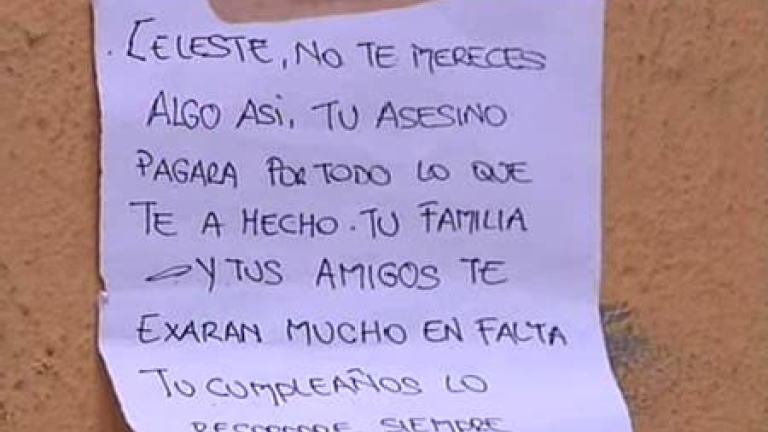 CELESTE, NO TE MERECES
ALGO ASi, TU ASESINO
PAGARA POR TODO LO QUE
TE A HECHO. TU FAMILIA
Y TUS AMIGOS TE
EXARAN MUCHO EN FALTA
TU CUMPLEAÑOS LO
RECORDARE SIEMPRE